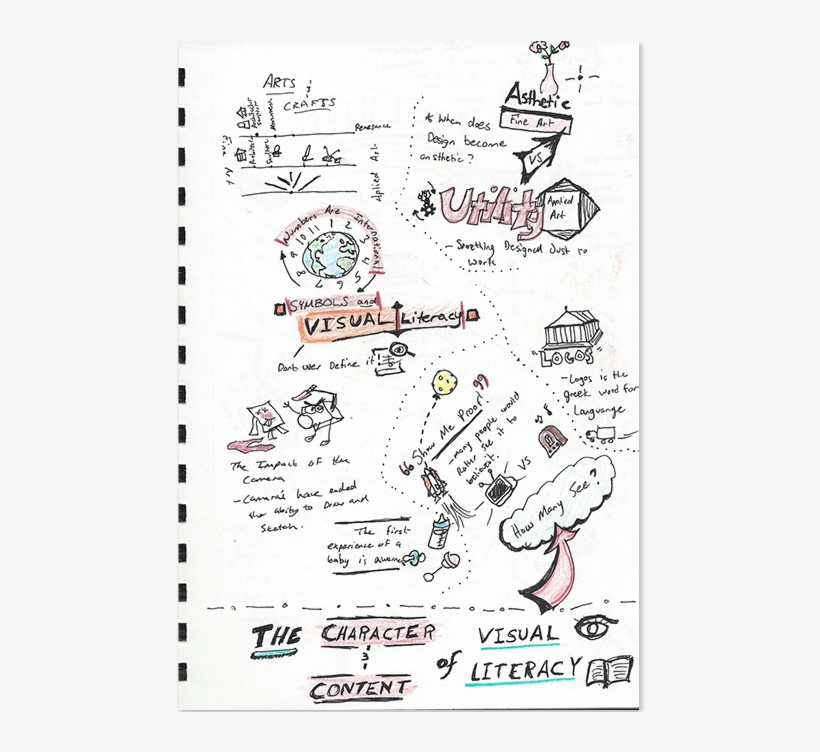 ARTS
&
CRAFTS
Renesance
Fine Art
Aplied Art
Asthetic
Fine Art
VS
* When does
Design become
asthetic?
Utility
Applied
Art
- Something Designed Just to
work
Numbers Are International
11 1 2 3 4 5 6 7 8 9 10
SYMBOLS and
VISUAL Literacy
Dont use Define it!
"LOGOS"
- Logos is the
greek word for
Language
"Show Me Proof!"
- many people would
Rather see it to
believe it.
VS
How Many See?
The Impact of the
Camera
- Camera's have ended
the ability to Draw and
Sketch.
The first
experience of a
baby is
THE CHARACTER
&
CONTENT
of
VISUAL
LITERACY